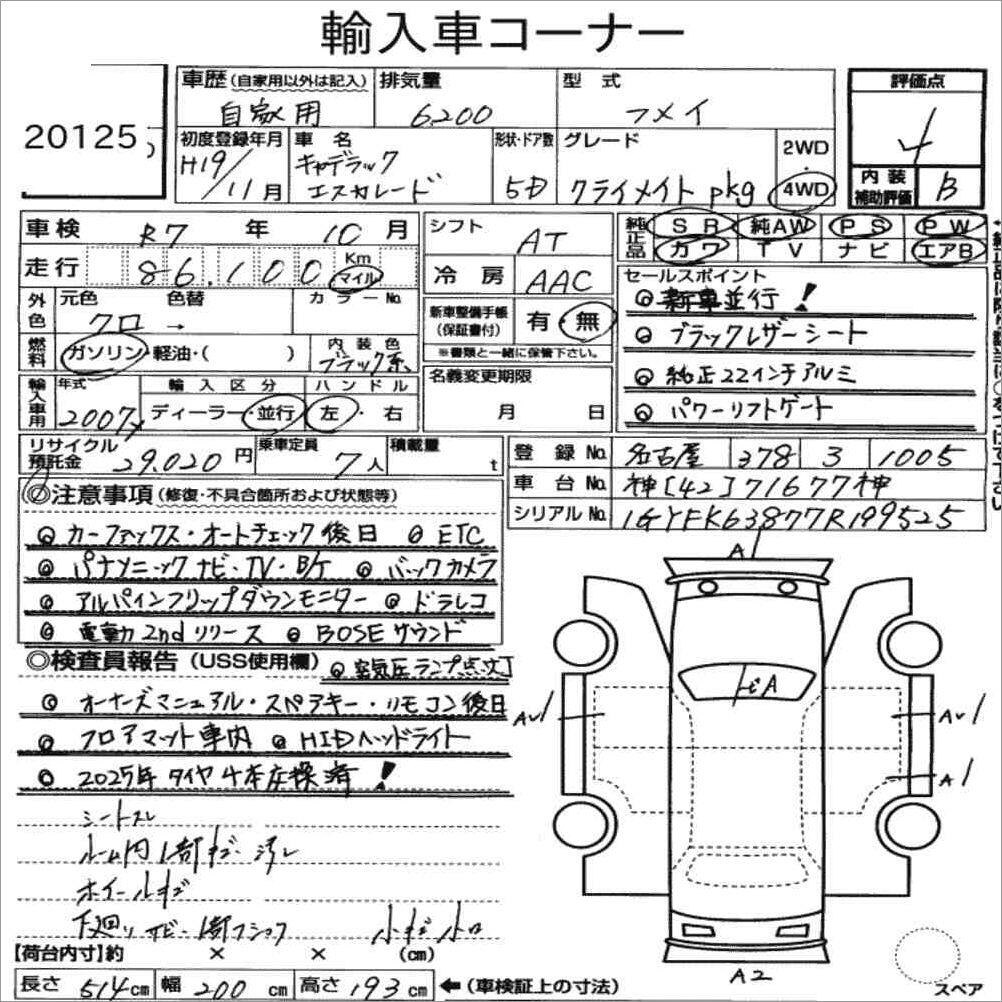 輸入車コーナー
20125
車歴(自家用以外は記入) 排気量 型式 評価点
自家用 6,200 フメイ 4
初度登録年月 車名 形状・ドア数 グレード 2WD
H19/11月 キャデラック エスカレード 5D クライメイト pkg 4WD
内装補助評価 B
車検 R7 年 10 月
走行 86,100 Km マイル
シフト AT
冷房 AAC
純正品 SR 純AW PS PW
カワ TV ナビ エアB
外色 元色 色替 カラーNo.
クロ →
新車整備手帳(保証書付) 有・無
※書類と一緒に保管下さい。
セールスポイント
◎ 新車並行!
◎ ブラックレザーシート
◎ 純正22インチアルミ
◎ パワーリフトゲート
燃料 ガソリン・軽油・( ) 内装色 ブラック系
名義変更期限
月 日
輸入車用 年式 輸入区分 ハンドル
2007y ディーラー・並行 左・右
リサイクル預託金 29,020円 乗車定員 7人 積載量 t
登録No. 名古屋 378 ヨ 1005
車台No. 神[42]71677神
シリアルNo. 1GYFK63877R199525
◎注意事項(修復・不具合箇所および状態等)
◎ カーファックス・オートチェック後日 ◎ ETC
◎ パナソニックナビ・TV・B/T ◎ バックカメラ
◎ アルパインフリップダウンモニター ◎ ドラレコ
◎ 電動2ndリリース ◎ BOSEサウンド
◎検査員報告(USS使用欄) ◎ 空気圧ランプ点灯
◎ オーナーズマニュアル・スペアキー・リモコン後日
◎ フロアマット車内 ◎ HIDヘッドライト
◎ 2025年タイヤ4本交換済!
シートスレ
ルーム内1部キズ・汚レ
ホイールキズ
下廻りサビ・1部フショク 小キズ小凹
A1
トビA
AU1
AU1
A1
A2
【荷台内寸】約 × × (cm)
長さ 514cm 幅 200cm 高さ 193cm ←(車検証上の寸法)
スペア